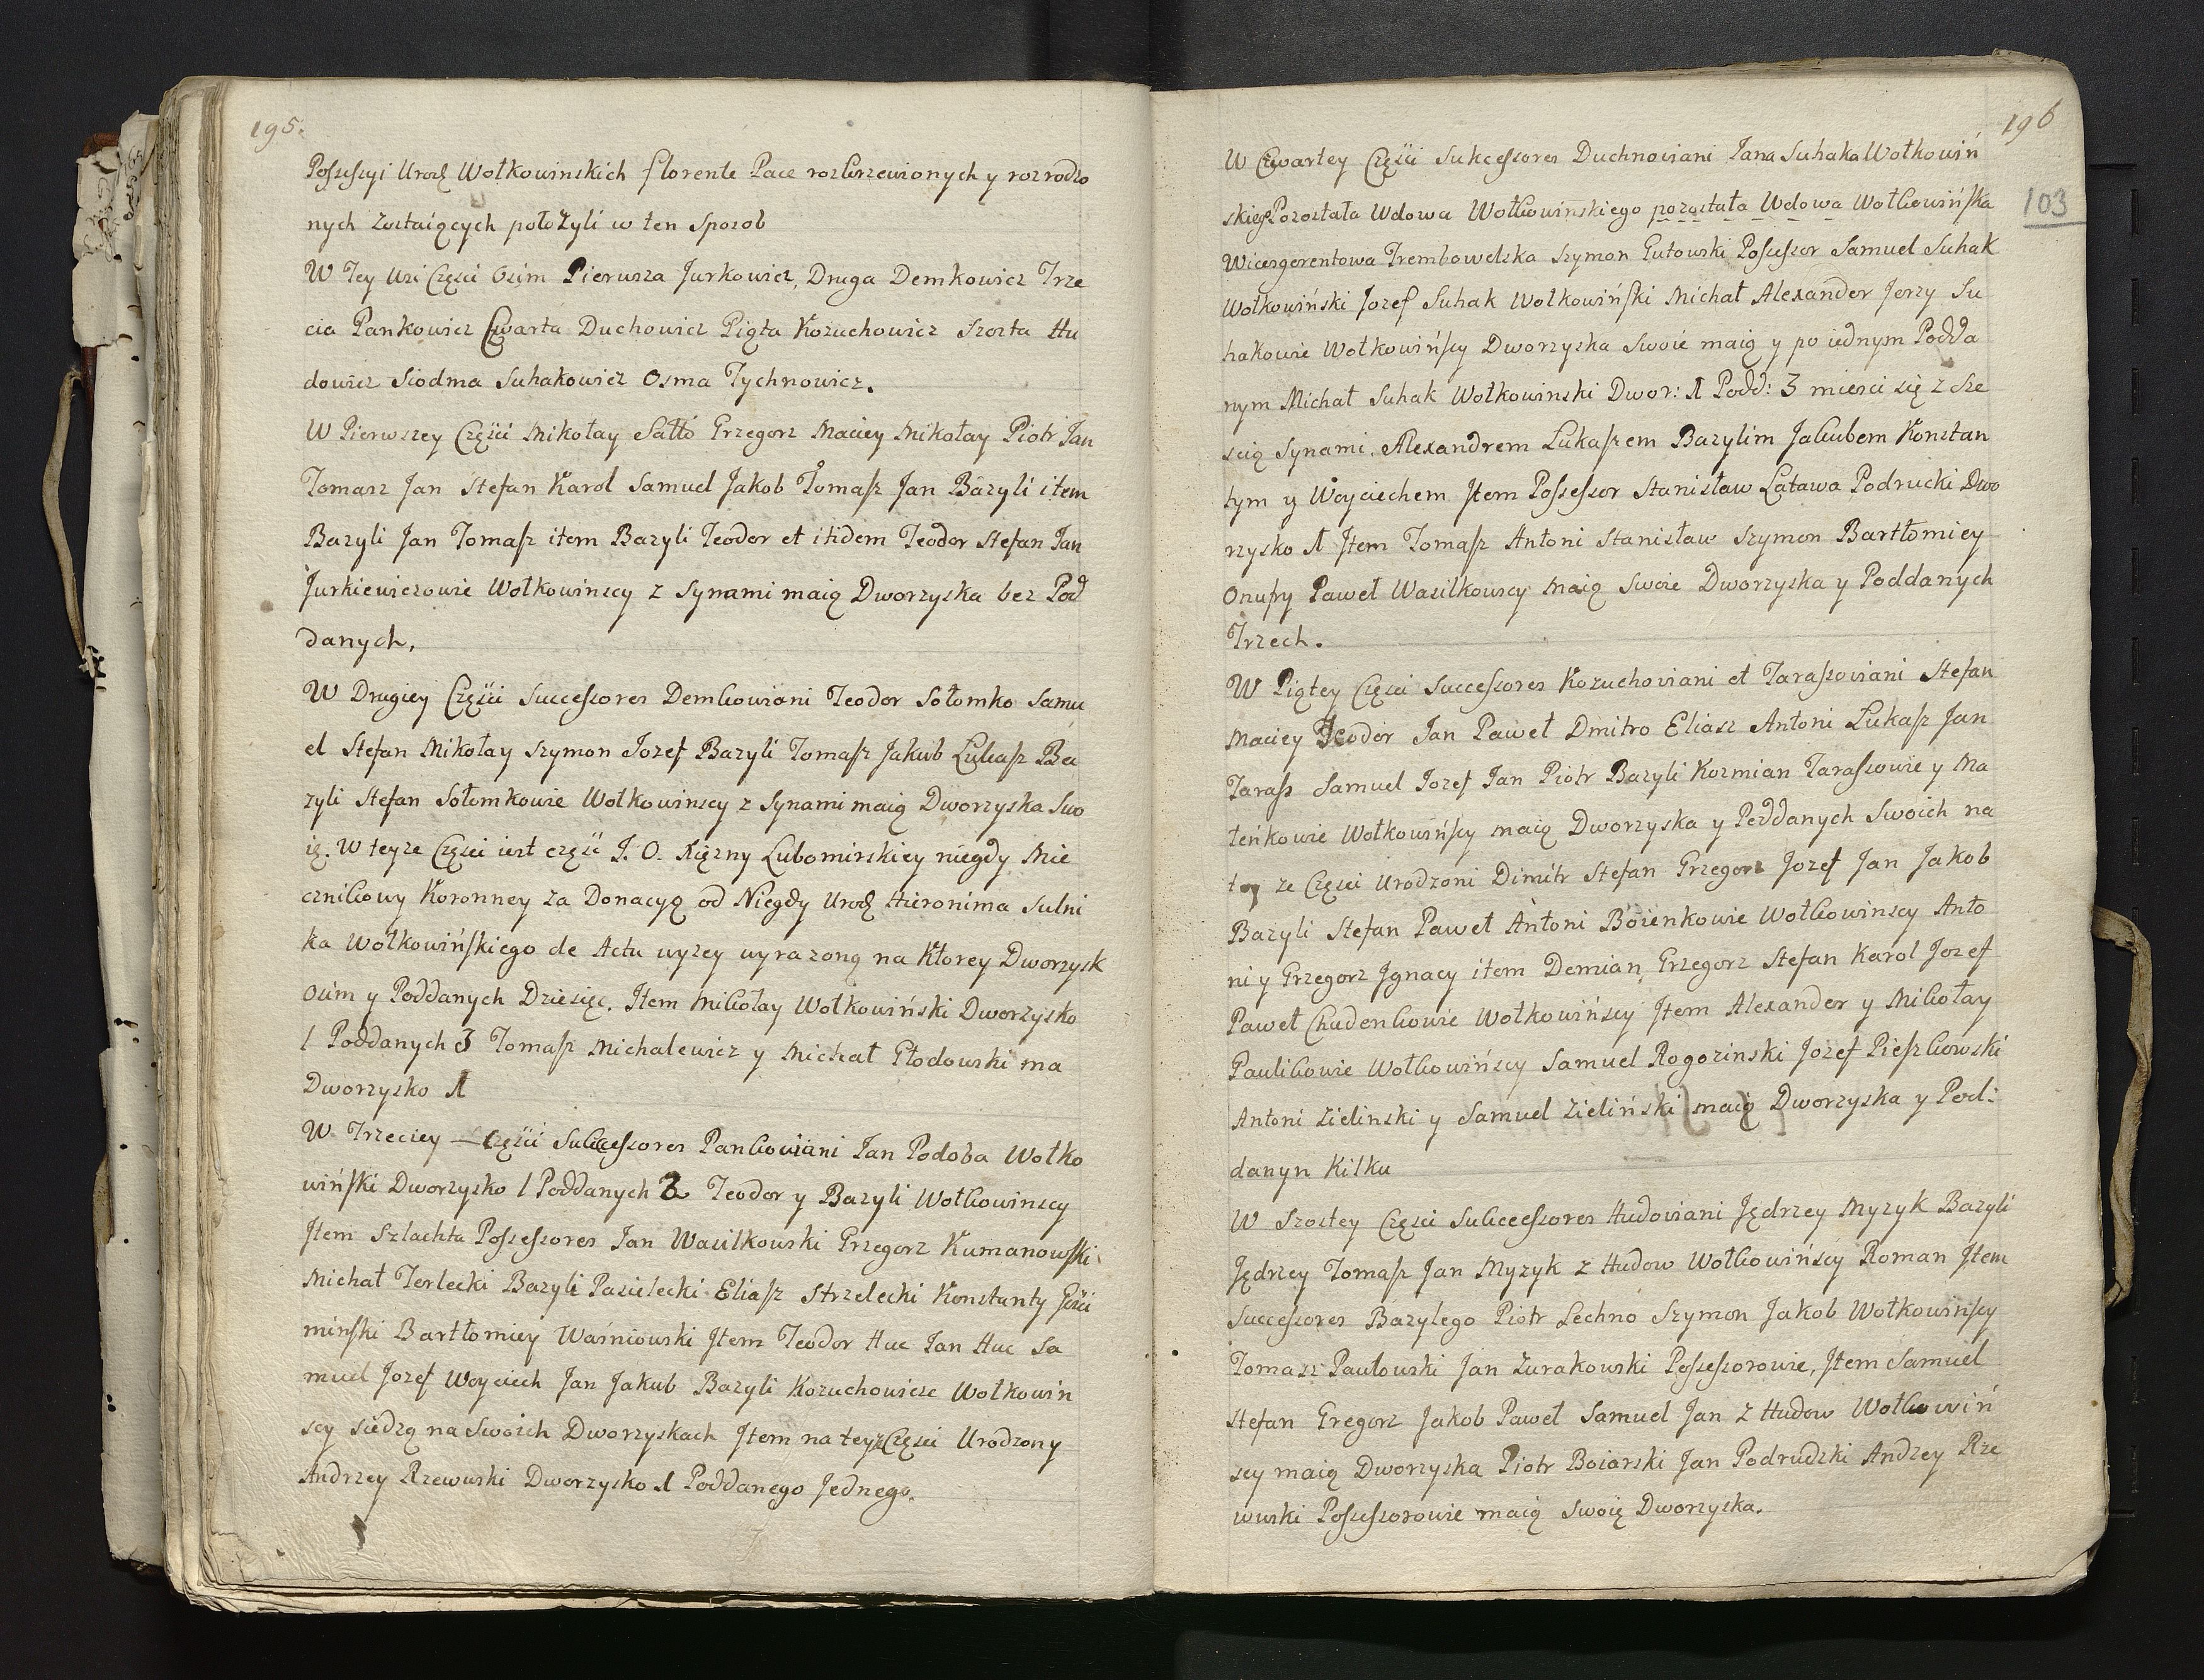 195.
Possessyi Urodz Wołkowinskich florente Pace rozkrzewionych y rozrodzo
nych zostaiących położyli w ten Sposob
W Tey Wsi Części Osim Pierwsza Jurkowicz, Druga Demkowicz Trze
cia Pankowicz Czwarta Duchowicz Piąta Kozuchowicz Szosta Hu
dowicz Siodma Suhakowicz Osma Tychnowicz.
W Pierwszey Części Mikołay Sałło Grzegorz Maciey Mikołay Piotr Jan
Tomasz Jan Stefan Karol Samuel Jakob Tomasz Jan Bazyli item
Bazyli Jan Tomasz item Bazyli Teodor et itidem Teodor Stefan Jan
Jurkiewiczowie Wołkowinscy z Synami maią Dworzyska bez Pod
danych,
W Drugiey Części Successores Demkowiani Teodor Sołomko Samu
el Stefan Mikołay Szymon Jozef Bazyli Tomasz Jakub Łukasz Ba
zyli Stefan Sołomkowie Wołkowinscy z Synami maią Dworzyska Swo
ię. W teyze Części iest część J. O. Xiężny Lubomirskiey niegdy Mie
cznikowy Koronney za Donacyą od Niegdy Urodz Hieronima Sulni
ka Wołkowińskiego de Actu wyzey wyrazoną na Ktorey Dworzysk
Osim y Poddanych Dziesięc. Jtem Mikołay Wołkowiński Dworzysko
1 Poddanych 3 Tomasz Michalewicz y Michał Głodowski ma
Dworzysko 1
W Trzeciey — Części Sukcessores Pankowiani Jan Podoba Wołko
wiński Dworzysko 1 Poddanych 2 Teodor y Bazyli Wołkowinscy
Jtem Szlachta Possessores Jan Wasilkowski Grzegorz Kumanowski
Michał Terlecki Bazyli Pasielecki Eliasz Strzelecki Konstanty Gości
miński Bartłomiey Waśniowski Jtem Teodor Huc Jan Huc Sa
muel Jozef Woyciech Jan Jakub Bazyli Kozuchowicze Wołkowin
scy siedzą na Swoich Dworzyskach Jtem na teyż Części Urodzony
Andrzey Rzewuski Dworzysko 1 Poddanego Jednego.
196
103
W Czwartey Części Sukcessores Duchnowiani Jana Suhaka Wołkowiń
skiego Pozostała Wdowa Wołkowinskiego pozostała Wdowa Wołkowińska
Wicesgerentowa Trembowelska Szymon Gutowski Possessor Samuel Suhak
Wołkowiński Jozef Suhak Wołkowiński Michał Alexander Jerzy Su
hakowie Wołkowińscy Dworzyska Swoie maią y po iednym Podda
nym Michał Suhak Wołkowinski Dwor: 1 Podd: 3 miesci się z Sze
scią Synami, Alexandrem Łukaszem Bazylim Jakubem Konstan
tym y Woyciechem Jtem Possessor Stanisław Łątawa Podrucki Dwo
rzysko 1 Jtem Tomasz Antoni Stanisław Szymon Bartłomiey
Onufry Paweł Wasilkowscy Maią Swoie Dworzyska y Poddanych
Trzech.
W Piątey Części Successores Kozuchowiani et Tarassowiani Stefan
Maciey Teodor Jan Paweł Dmitro Eliasz Antoni Łukasz Jan
Tarass Samuel Jozef Jan Piotr Bazyli Kozmian Tarassowie y Ma
teńkowie Wołkowińscy maią Dworzyska y Poddanych Swoich na
tey ze Części Urodzoni Dimitr Stefan Grzegorz Jozef Jan Jakob
Bazyli Stefan Paweł Antoni Boienkowie Wołkowinscy Anto
ni y Grzegorz Jgnacy item Demian Grzegorz Stefan Karol Jozef
Paweł Chudenkowie Wołkowińscy Jtem Alexander y Mikołay
Paulikowie Wołkowińscy Samuel Rogozinski Jozef Pieszkowski
Antoni Zielinski y Samuel Zieliński maią Dworzyska y Pod:
danyn Kilku
W Szostey Części Sukccessores Hudowiani Jędrzey Myzyk Bazyli
Jędrzey Tomasz Jan Myzyk z Hudow Wołkowińscy Roman Jtem
Successores Bazylego Piotr Lechno Szymon Jakob Wołkowińscy
Tomasz Pawłowski Jan Zurakowski Possessorowie, Jtem Samuel
Stefan Gregorz Jakob Paweł Samuel Jan z Hudow Wołkowiń
scy maią Dworzyska Piotr Boiarski Jan Podrudzki Andzey Rze
wuski Possessorowie maią Swoię Dworzyska.